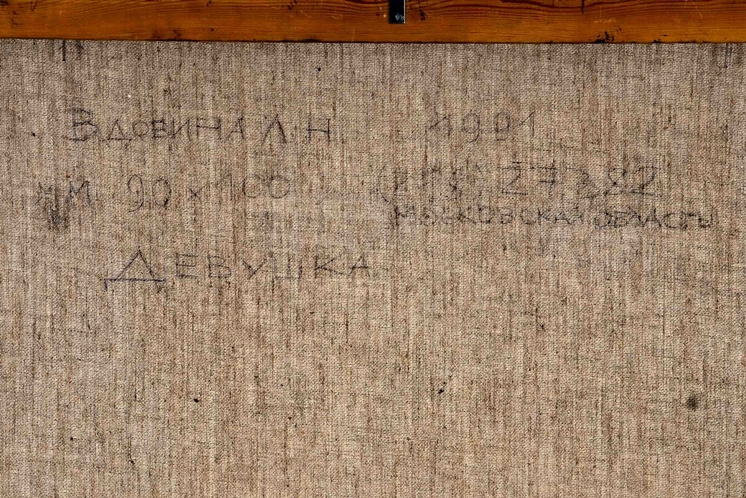 Вдовина Л.Н 1991
90 x 100
Московская область
Девушка